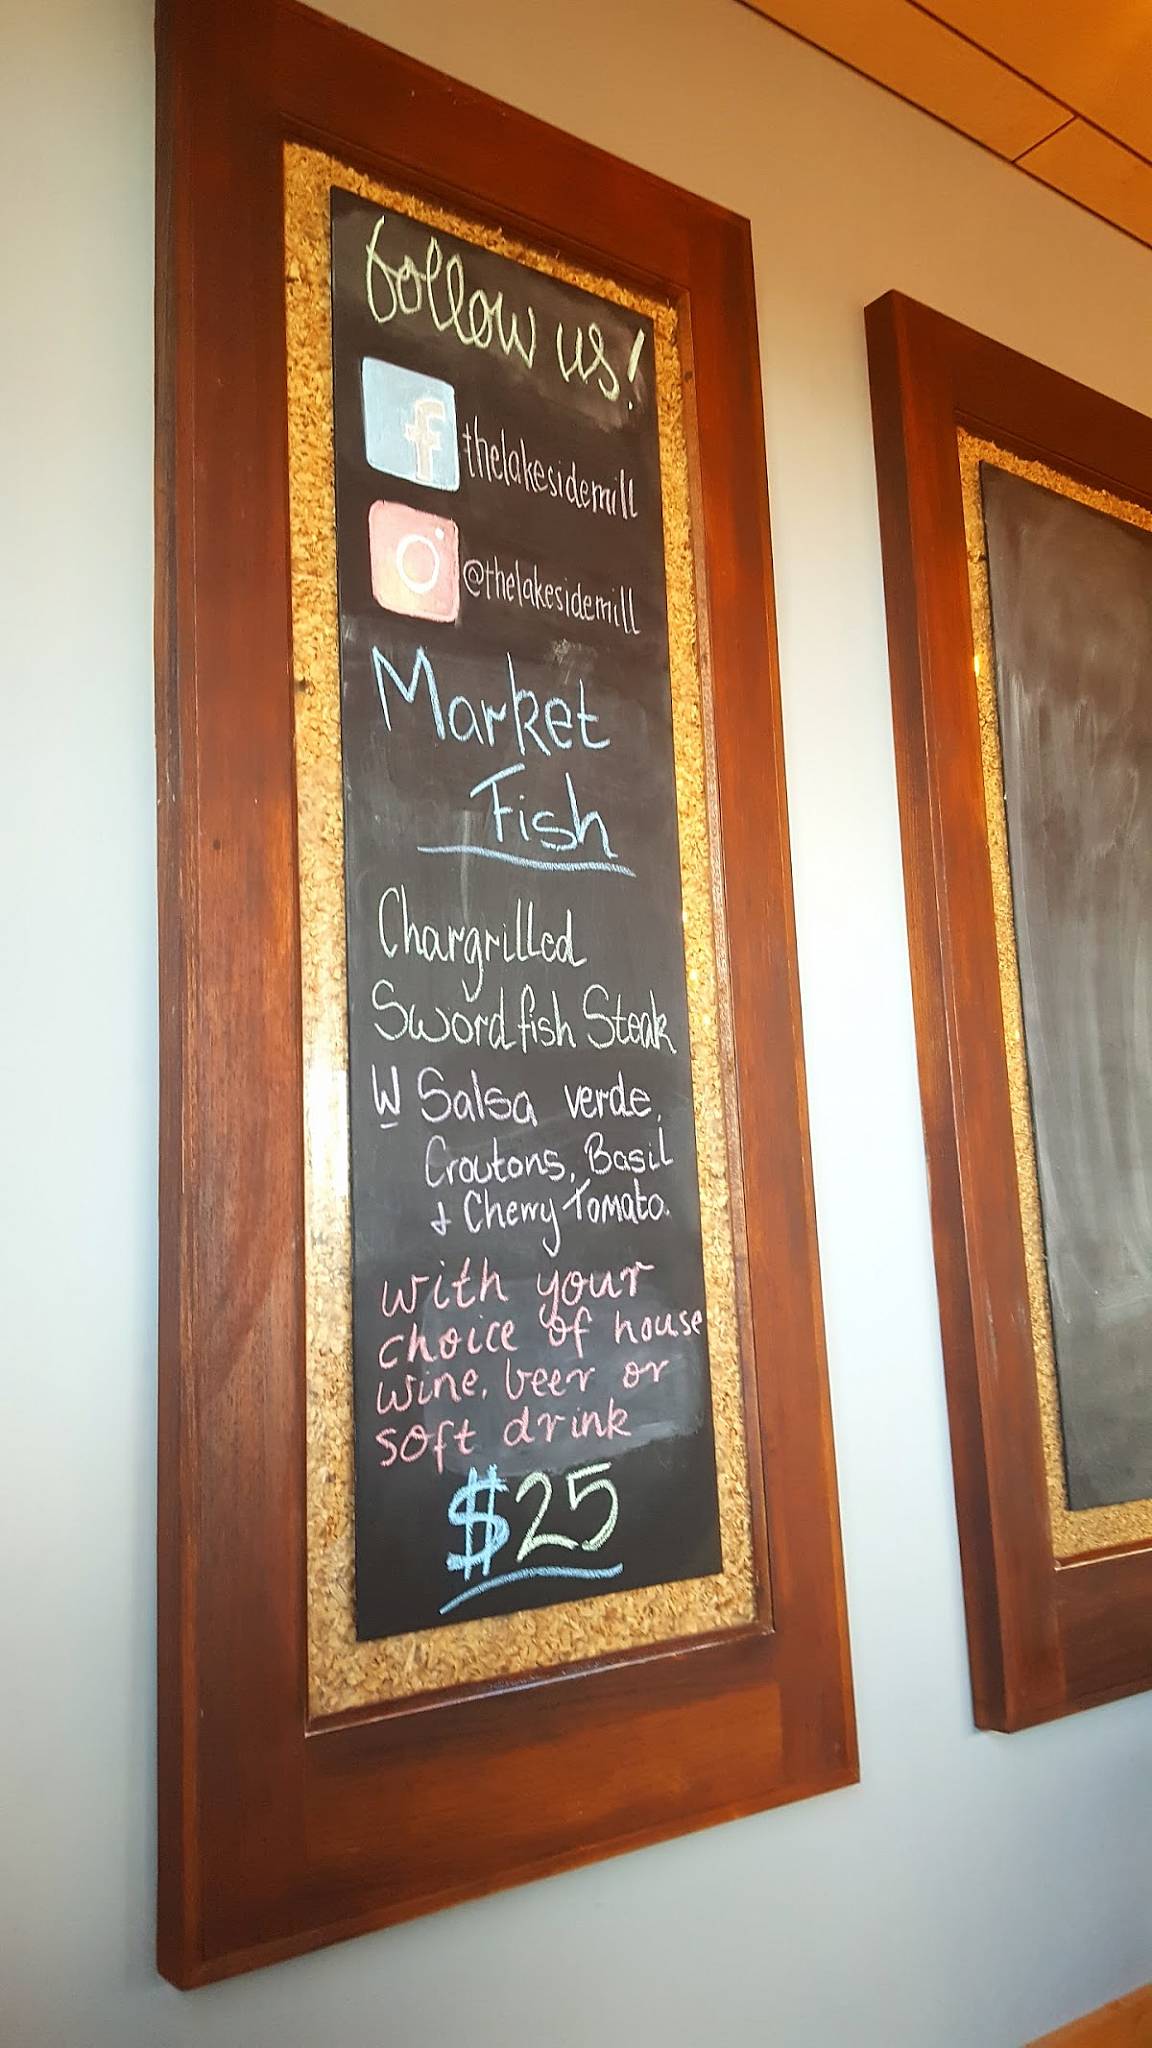 follow us!
f thelakesidemill
@thelakesidemill
Market
Fish
Chargrilled
Swordfish Steak
W Salsa verde,
Croutons, Basil
& Cherry Tomato.
with your
choice of house
wine, beer or
soft drink
$25